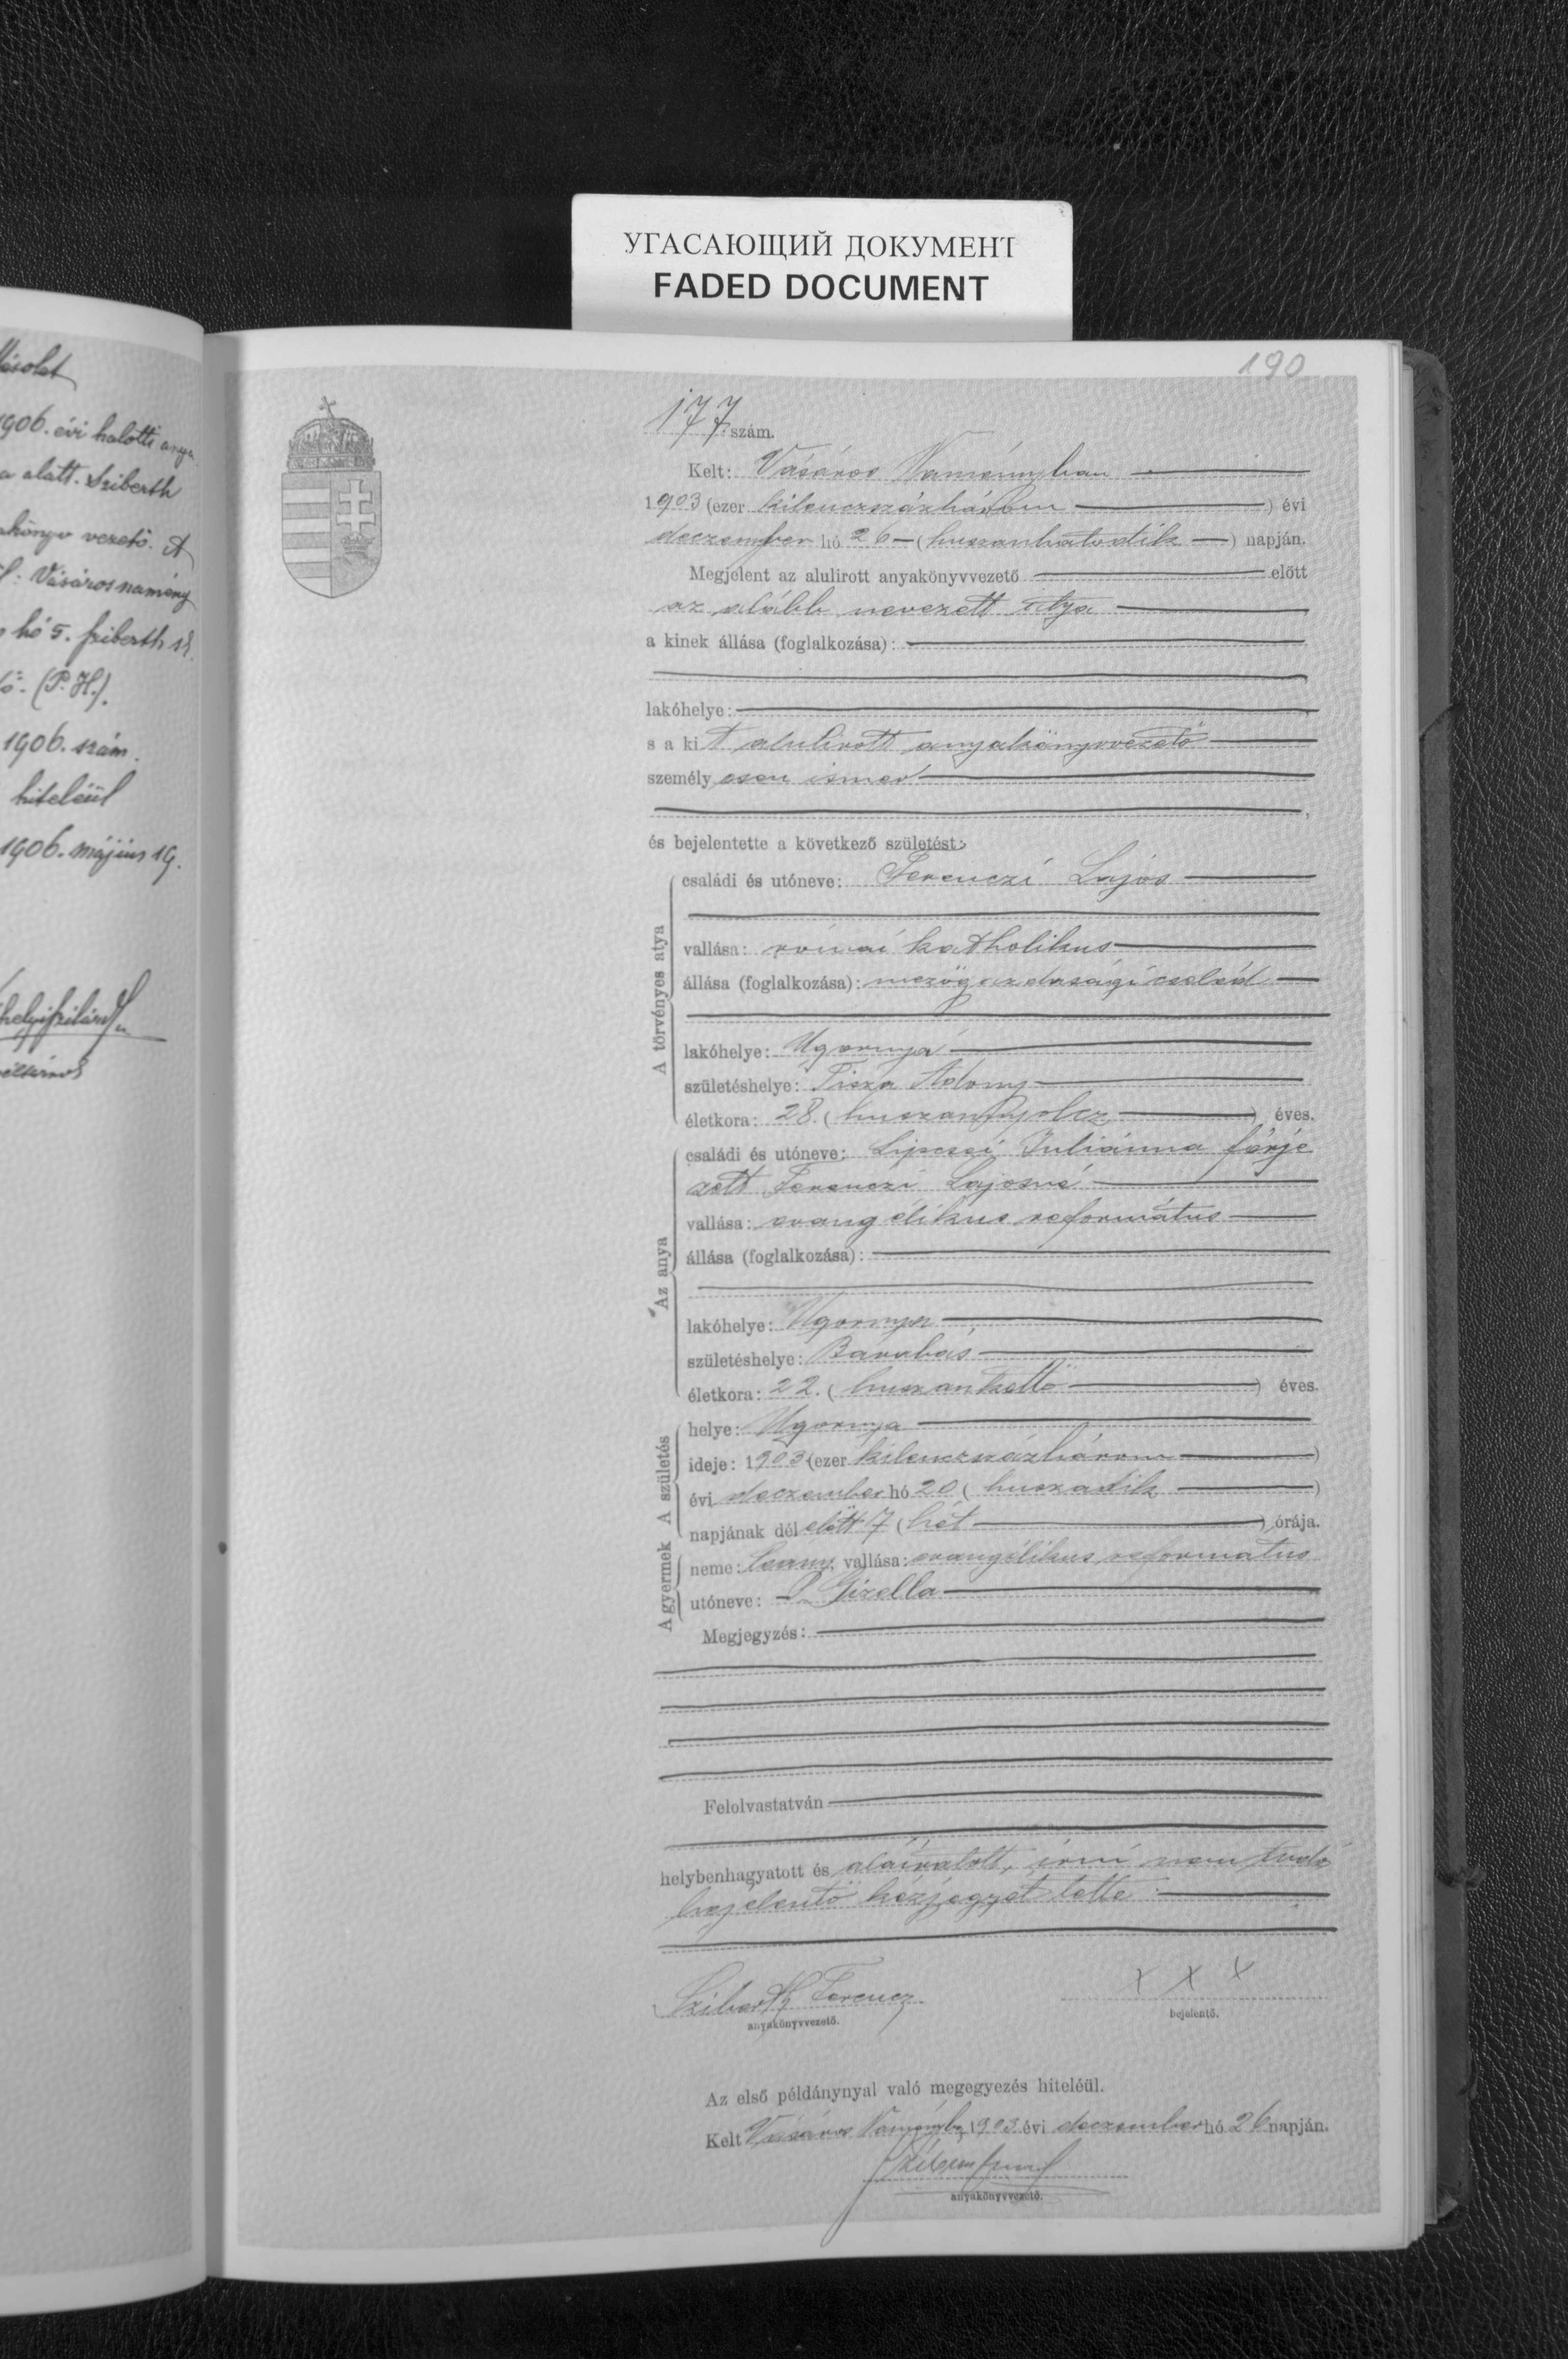 УГАСАЮЩИЙ ДОКУМЕНТ
FADED DOCUMENT
190
1906. évi halotti anya
a alatt. Sziberth
akönyv vezető. A
: Vásárosnamény
hó 5. Sziberth
(P. H.)
1906. szám.
hiteléül
1906. május 19.
177 szám.
Kelt: Vásáros Naményban
1903 (ezer kilenczszázhárom) évi
deczember hó 26 (huszonhatodik) napján.
Megjelent az alulirott anyakönyvvezető előtt
az alább nevezett atya
a kinek állása (foglalkozása):
lakóhelye:
s a kit alulirott anyakönyvvezető
személyesen ismer
és bejelentette a következő születést:
A törvényes atya
családi és utóneve: Ferenczi Lajos
vallása: római katholikus
állása (foglalkozása): mezőgazdasági cseléd
lakóhelye: Ugornya
születéshelye: Tisza Adony
életkora: 28. (huszonnyolcz) éves.
Az anya
családi és utóneve: Lipcsei Juliánna férje
zett Ferenczi Lajosné
vallása: evangélikus református
állása (foglalkozása):
lakóhelye: Ugornya
születéshelye: Barabás
életkora: 22. (huszonkettő) éves.
A születés
helye: Ugornya
ideje: 1903 (ezer kilenczszázhárom)
évi deczember hó 20 (huszadik)
napjának dél előtt 7 (hét) órája.
A gyermek
neme: leany, vallása: evangélikus reformatus
utóneve: Gizella
Megjegyzés:
Felolvastatván
helybenhagyatott és aláiratott, irni nem tudó
bejelentő kézjegyet tette
Sziberth Ferencz
anyakönyvvezető.
x x x
bejelentő.
Az első példánynyal való megegyezés hiteléül.
Kelt Vásáros Naményba, 1903 évi deczember hó 26 napján.
anyakönyvvezető.